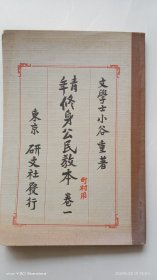 文學士小谷重著
青年修身公民教本 卷一
町村用
東京 研文社發行